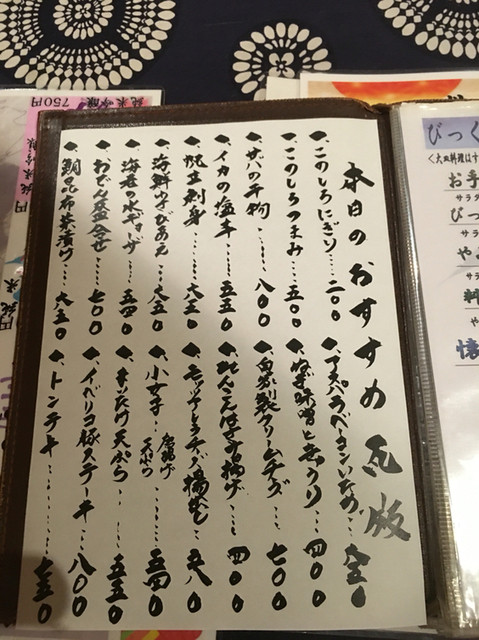 本日のおすすめ瓦版
◆このしろにぎり…二〇〇
◆このしろつまみ…五〇〇
◆サバの干物…八〇〇
◆イカの塩辛…五五〇
◆地主刺身…六五〇
◆海鮮わさびあえ…八五〇
◆海老の水ギョーザ…五四〇
◆おでん盛合せ…七〇〇
◆鯛の昆布茶漬け…六五〇
◆アスパラベーコンいため…
◆ねぎ味噌ときうり…四〇〇
◆自家製クリームチーズ…七〇〇
◆れんこんはさみ揚げ…四〇〇
◆モッツァレラチーズ揚出し…五八〇
◆小女子 唐揚げ 天ぷら…五四〇
◆まいたけ天ぷら…五五〇
◆イベリコ豚ステーキ…八〇〇
◆トンテキ…七五〇
純米吟醸 750円
びっく
お手
サラダ
びっ
サラ
や
懐